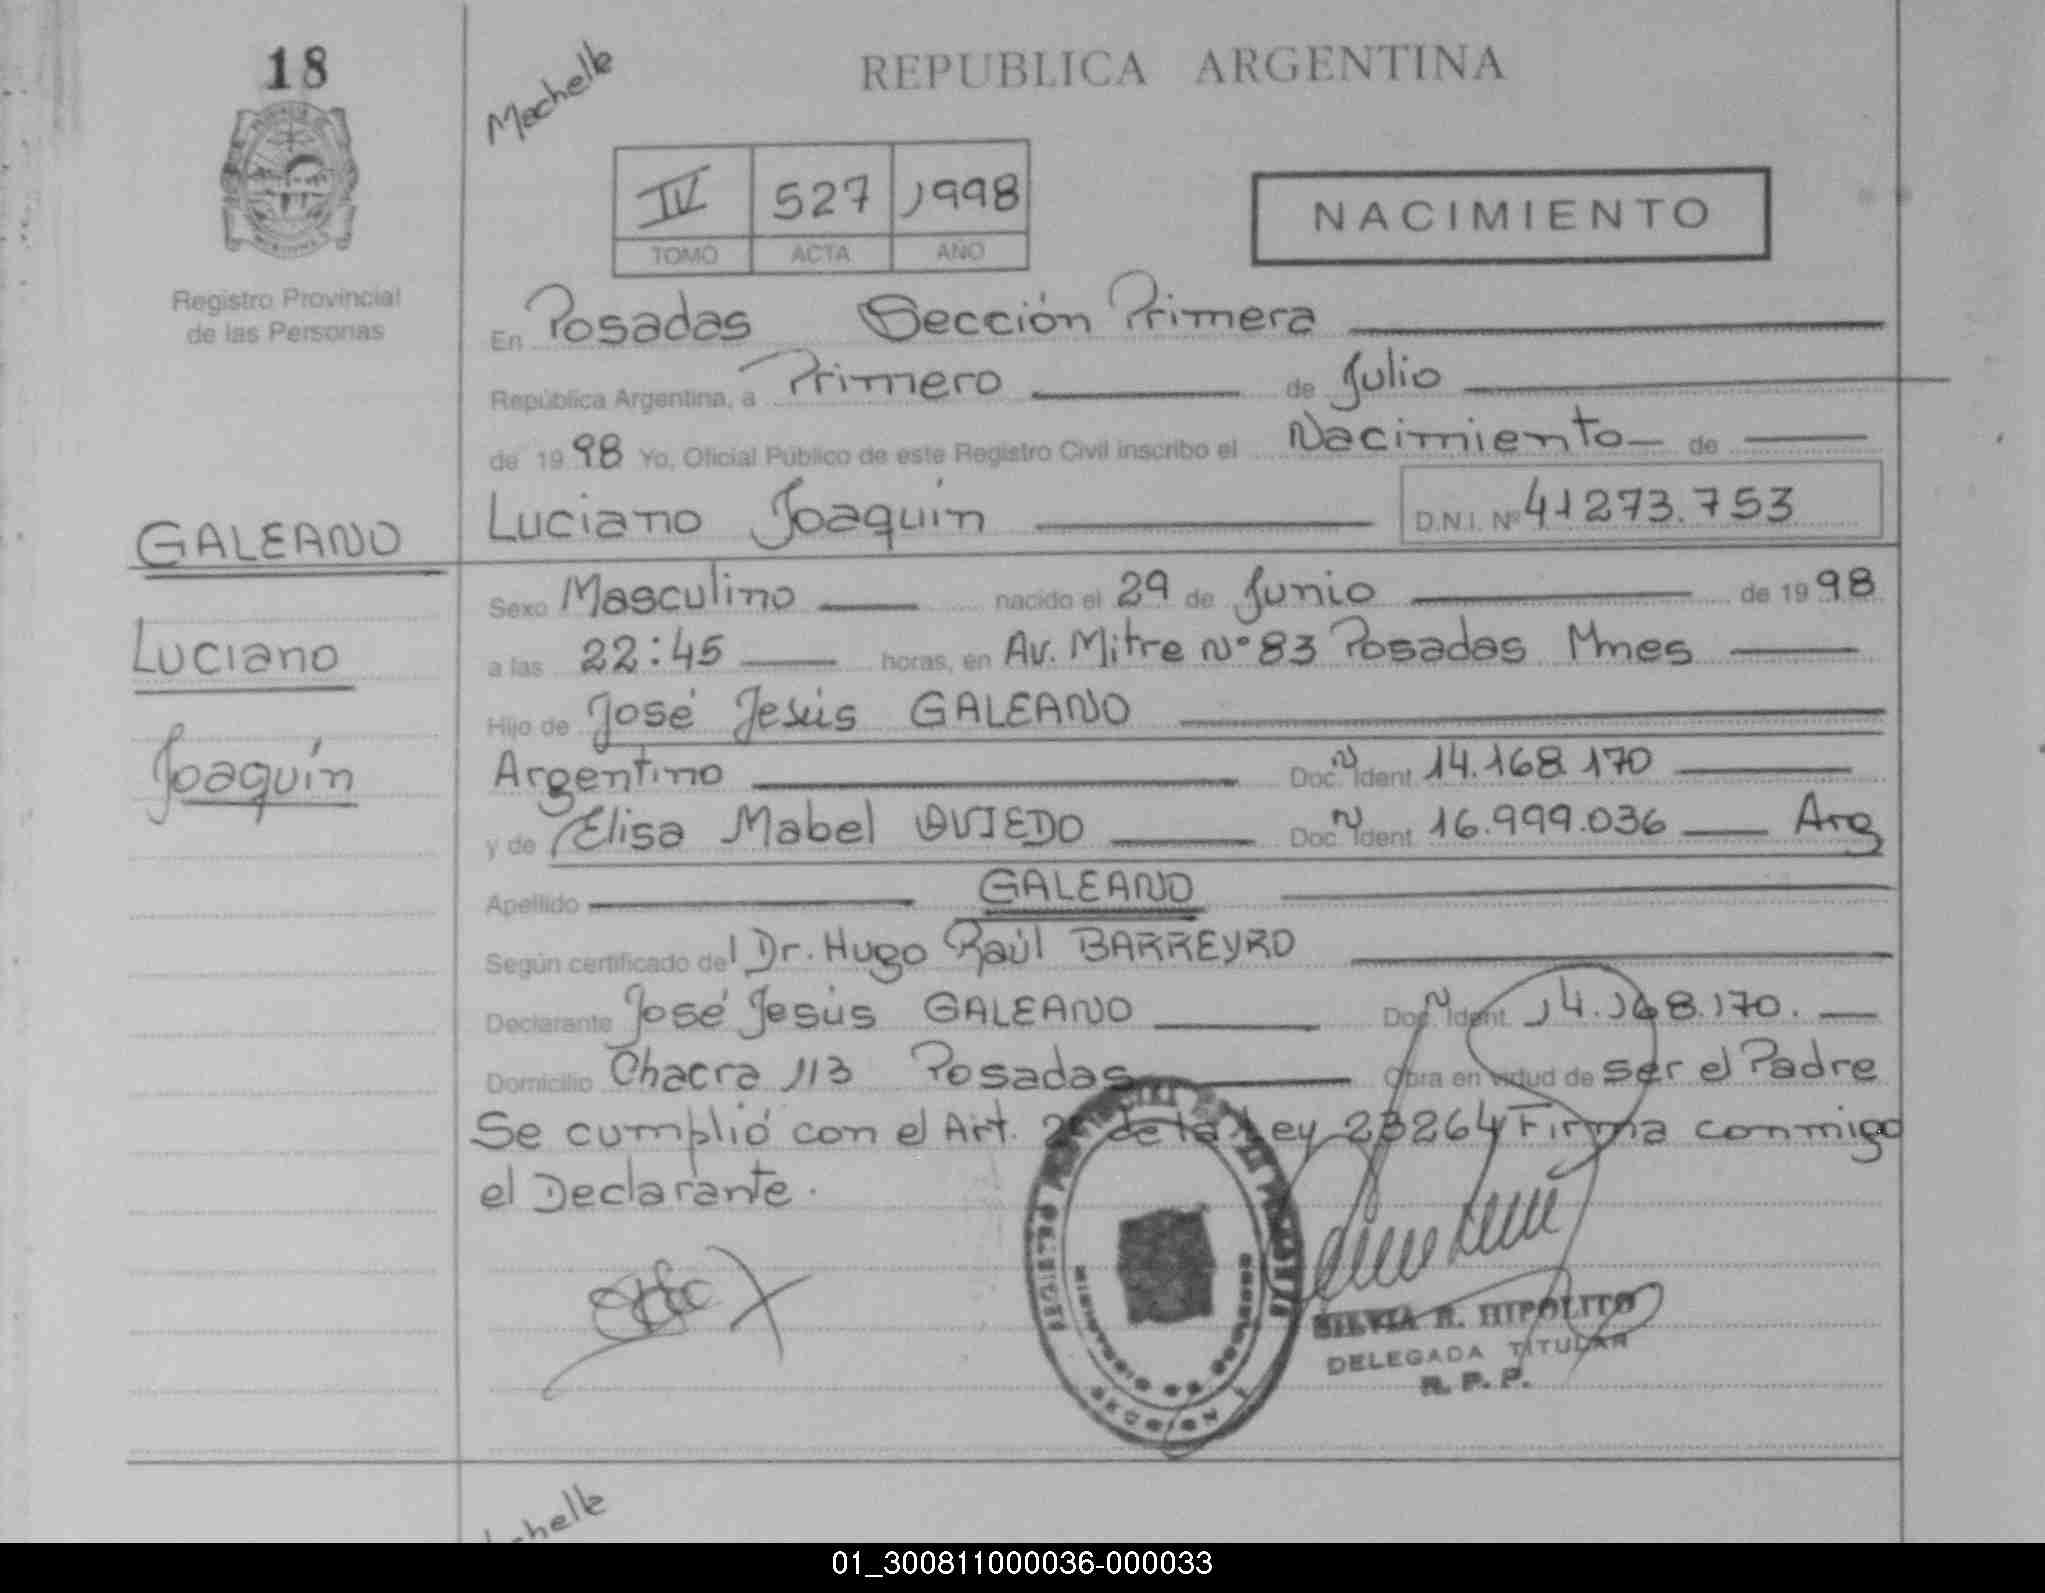 18
Machelle
REPUBLICA ARGENTINA
IV 527 1998
TOMO ACTA AÑO
NACIMIENTO
Registro Provincial
de las Personas
En Posadas Sección Primera
República Argentina, a Primero de Julio
de 19 98 Yo, Oficial Público de este Registro Civil inscribo el Nacimiento de
Luciano Joaquín D.N.I. Nº 41273.753
GALEANO
Luciano
Joaquín
Sexo Masculino nacido el 29 de Junio de 19 98
a las 22:45 horas, en Av. Mitre Nº 83 Posadas Mnes
Hijo de José Jesús GALEANO
Argentino Doc. N Ident. 14.168.170
y de Elisa Mabel OVIEDO Doc. N Ident. 16.999.036 Arg
Apellido GALEANO
Según certificado del Dr. Hugo Raúl BARREYRO
Declarante José Jesús GALEANO Doc. N Ident. 14.168.170.
Domicilio Chacra 113 Posadas Obra en virtud de ser el Padre
Se cumplió con el Art. de la Ley 23264 Firma conmigo
el Declarante.
SILVIA R. HIPOLITO
DELEGADA TITULAR
R. P. P.
SECCION
01_300811000036-000033